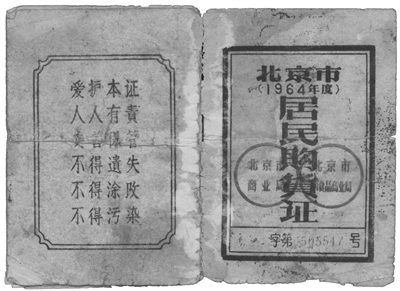 爱护本证
人人有責
妥善保管
不得遗失
不得涂改
不得污染
北京市
(1964年度)
居民购货证
北京市
商业局
北京市
食品商业局
字第 号